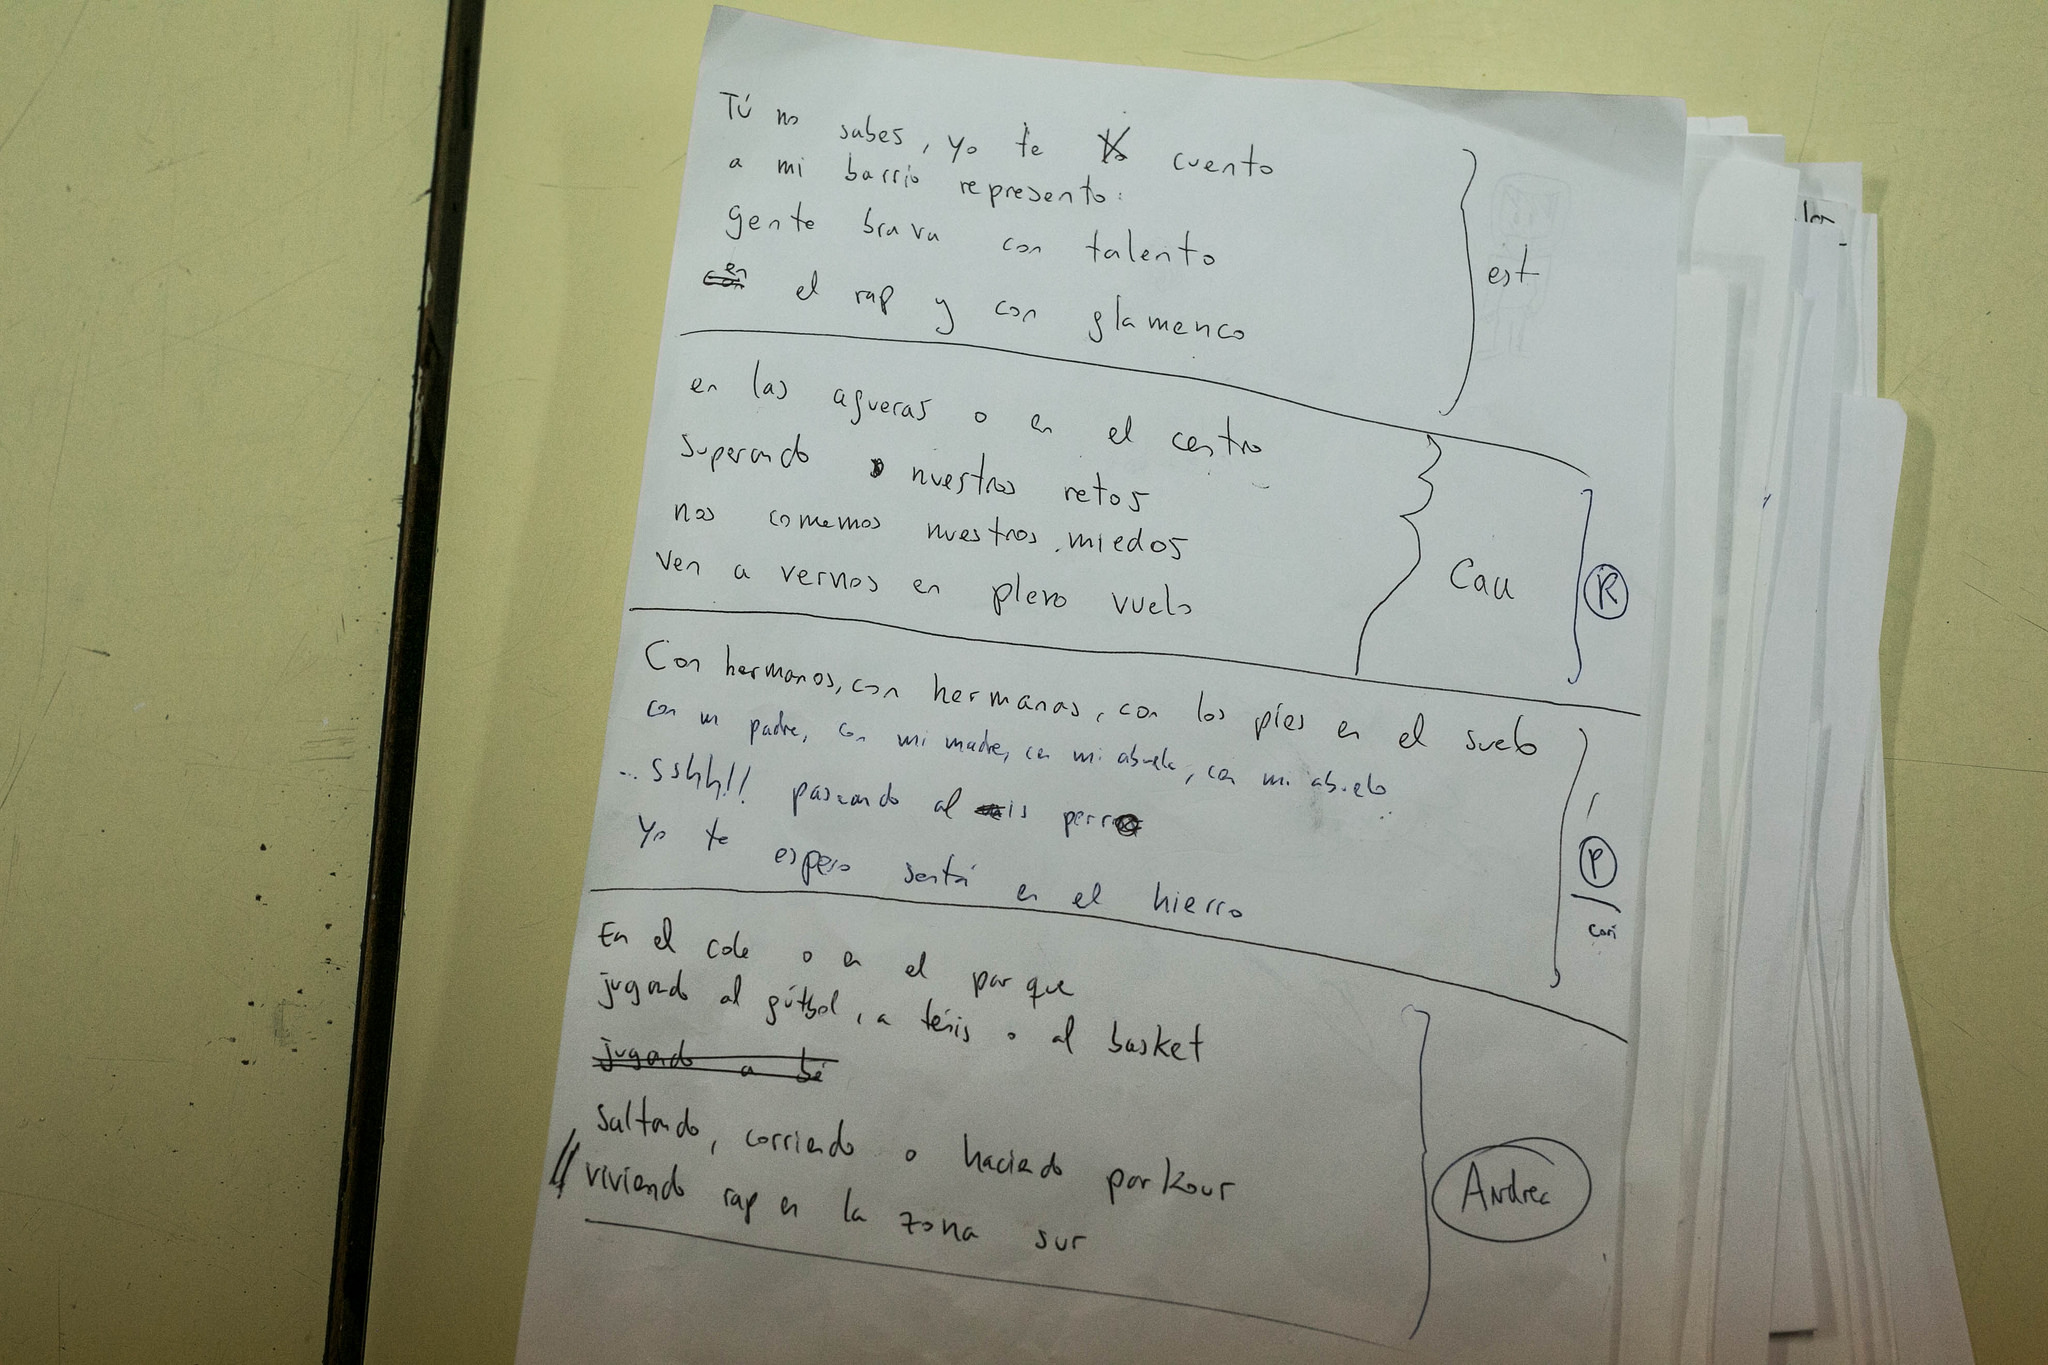 Tú no sabes, yo te lo cuento
a mi barrio represento:
gente brava con talento
con en el rap y con flamenco
est
en las afueras o en el centro
superando nuestros retos
nos comemos nuestros miedos
ven a vernos en pleno vuelo
Cau
R
Con hermanos, con hermanas, con los pies en el suelo
con mi padre, con mi madre, con mi abuela, con mi abuelo
...sshh!! paseando al mis perro
Yo te espero sentá en el hierro
P
cori
En el cole o en el parque
jugando al fútbol, a tenis o al basket
jugando a bé
Saltando, corriendo o haciendo parkour
// viviendo rap en la zona sur
Andrea